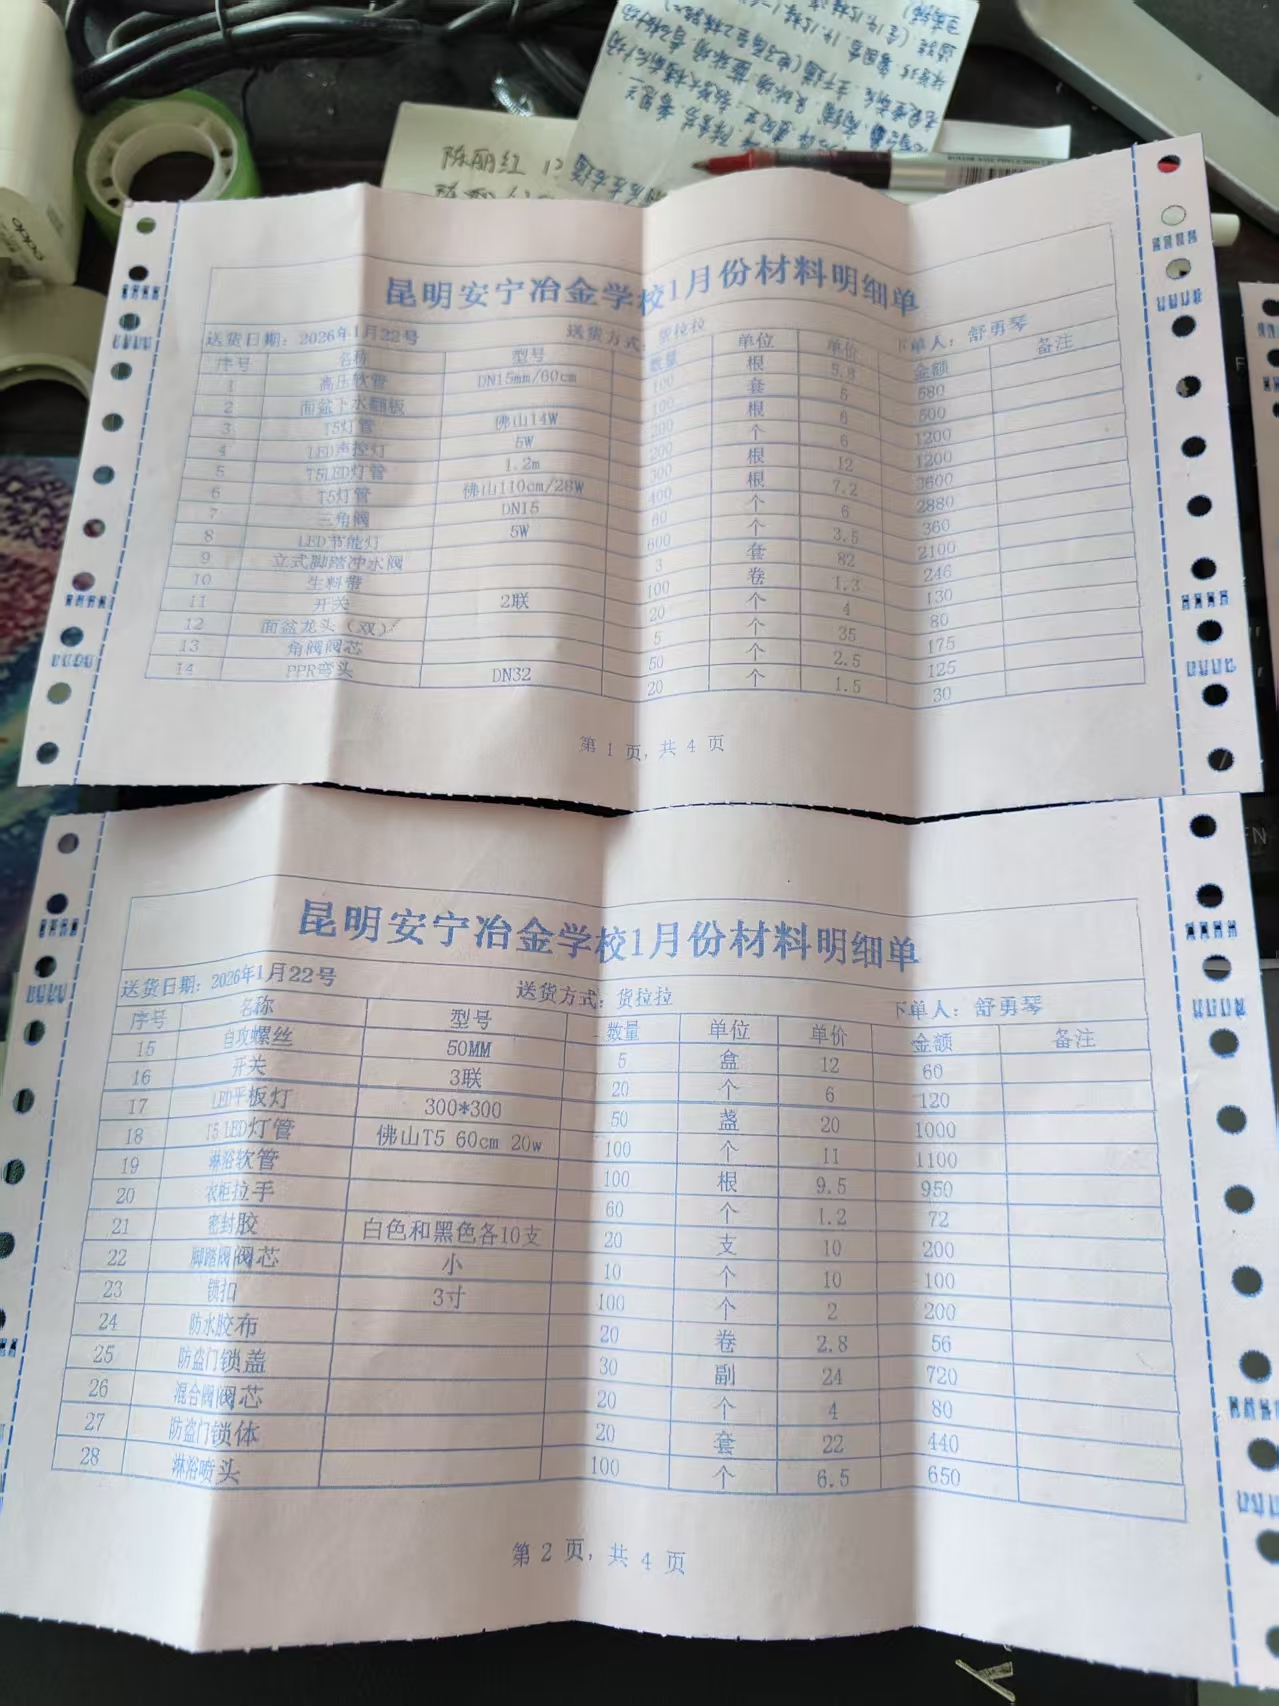 陈丽红
昆明安宁冶金学校1月份材料明细单
送货日期：2026年1月22号 送货方式：货拉拉 下单人：舒勇琴
序号 名称 型号 数量 单位 单价 金额 备注
1 高压软管 DN15mm/60cm 100 根 5.8 580
2 面盆下水翻板 100 套 5 500
3 T5灯管 佛山14W 200 根 6 1200
4 LED声控灯 5W 200 个 6 1200
5 T5LED灯管 1.2m 300 根 12 3600
6 T5灯管 佛山110cm/28W 400 根 7.2 2880
7 三角阀 DN15 60 个 6 360
8 LED节能灯 5W 600 个 3.5 2100
9 立式脚踏冲水阀 3 套 82 246
10 生料带 100 卷 1.3 130
11 开关 2联 20 个 4 80
12 面盆龙头（双） 5 个 35 175
13 角阀阀芯 50 个 2.5 125
14 PPR弯头 DN32 20 个 1.5 30
第 1 页，共 4 页
昆明安宁冶金学校1月份材料明细单
送货日期：2026年1月22号 送货方式：货拉拉 下单人：舒勇琴
序号 名称 型号 数量 单位 单价 金额 备注
15 自攻螺丝 50MM 5 盒 12 60
16 开关 3联 20 个 6 120
17 LED平板灯 300*300 50 盏 20 1000
18 T5 LED灯管 佛山T5 60cm 20w 100 个 11 1100
19 淋浴软管 100 根 9.5 950
20 衣柜拉手 60 个 1.2 72
21 密封胶 白色和黑色各10支 20 支 10 200
22 脚踏阀阀芯 小 10 个 10 100
23 锁扣 3寸 100 个 2 200
24 防水胶布 20 卷 2.8 56
25 防盗门锁盖 30 副 24 720
26 混合阀阀芯 20 个 4 80
27 防盗门锁体 20 套 22 440
28 淋浴喷头 100 个 6.5 650
第 2 页，共 4 页